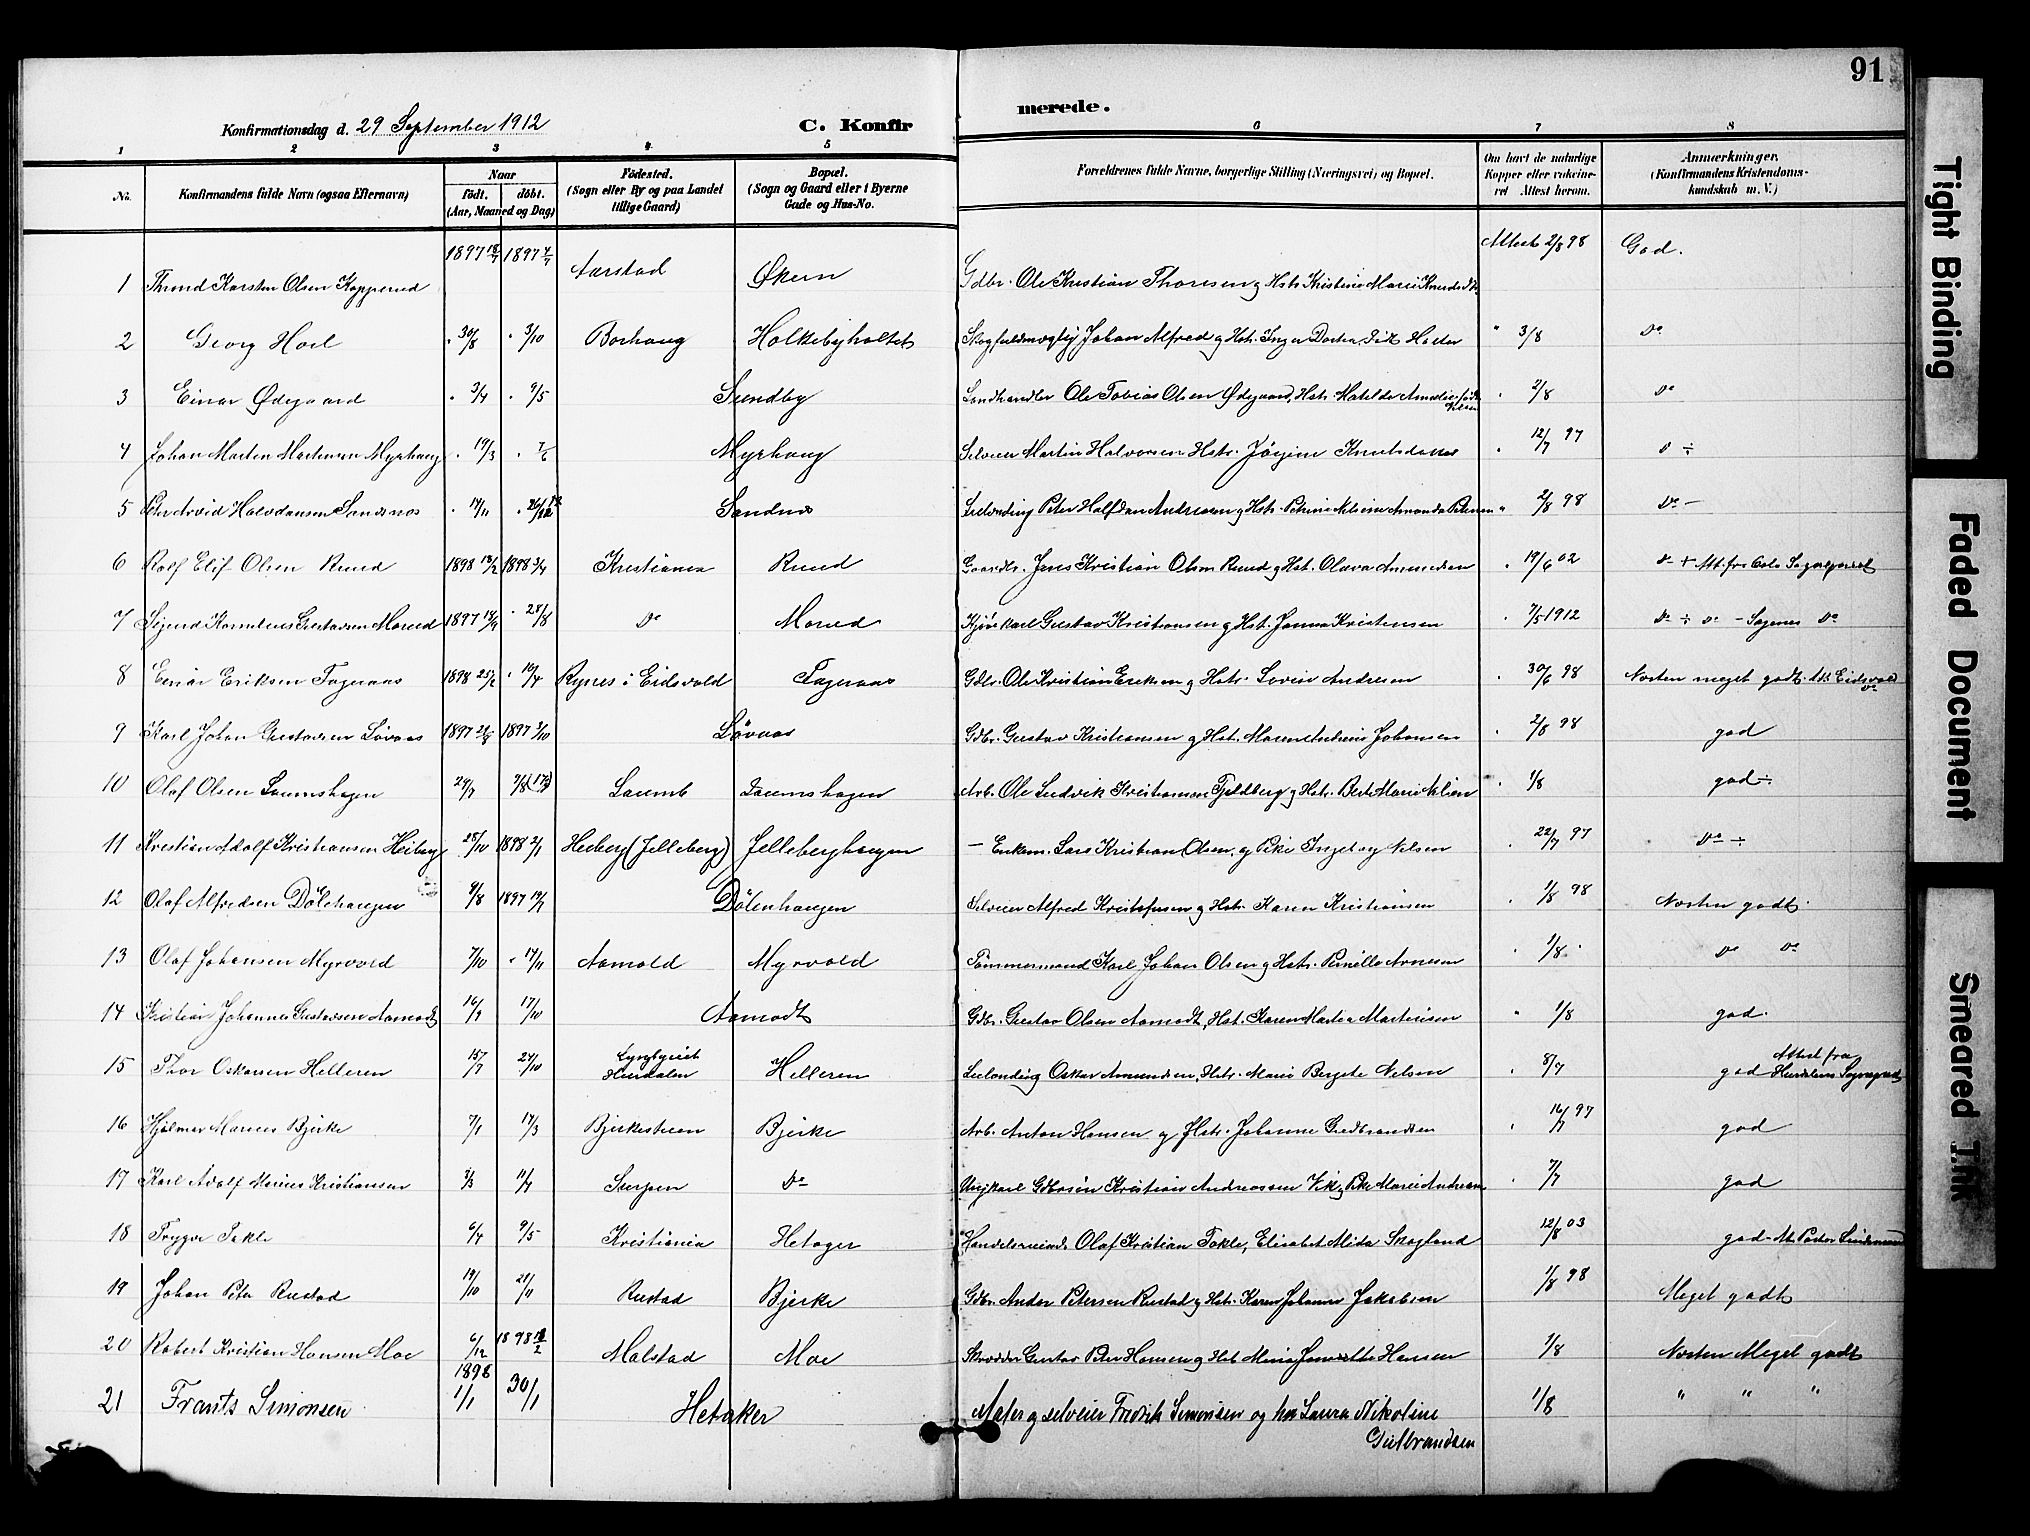 91
Konfirmationsdag d. 29 September 1912 C. Konfirmerede.
1 2 3 4 5 6 7 8
No. Konfirmandens fulde Navn (ogsaa Efternavn) Naar født. døbt. (Aar, Maaned og Dag) Fødested. (Sogn eller By og paa Landet tillige Gaard) Bopæl. (Sogn og Gaard eller i Byerne Gade og Hus-No. Forældrenes fulde Navne, borgerlige Stilling (Næringsvei) og Bopæl. Om havt de naturlige Kopper eller vakcineret Attest herom. Anmærkninger. (Konfirmandens Kristendomskundskab m. V.)
1 Karsten Olsen Kopperud 1897 1897 Aarstad Økern Gdbr. Ole Kristian Thoresen og Hstr. Kristine Marie Attest 2/8 98 God.
2 Georg Hoel 30/8 3/10 Borhaug Holkebyholtet Johan Alfred og Hstr. Inger 3/8 Do
3 Einar Ødegaard 3/4 9/5 Sundby Landhandler Ole Tobias Olsen Ødegaard, Hstr. Matilde Amalie født 2/8 Do
4 Johan Martin Myrhaug 19/3 7/6 Myrhaug Selveier Martin Halvorsen Hstr. Jørgine Knutsdatter 12/7 97 D ÷
5 Arvid Halvdansen Sandnes 14/11 26/12 Sandnes Peter Halfdan Andreasen og Hstr. Petrine 2/8 98 Do -
6 Rolf Elif Olsen Ruud 1898 1898 3/4 Kristiania Ruud Gaardbr. Jens Kristian Olsen Ruud og Hst. Olava Amundsen 19/6 02 Do ÷ Att. fra Oslo Sognepræst
7 Kornelius Gustavsen Morud 1897 28/8 Do Morud Gustav Kristiansen og Hst. Janna Kristensen 7/5 1912 Do ÷ Do - Sagenes Do
8 Einar Eriksen Fageraas 1898 25/2 19/4 Rynes i Eidsvold Fageraas Gdbr. Ole Kristian Eriksen og Hstr. Lovise Andresen 30/6 98 Næsten meget godt Att. Eidsvold Do
9 Karl Johan Gustavsen Løvaas 1897 1897 3/10 Løvaas Gdbr. Gustav Kristiansen og Hst. Maren Andrine Johansen 2/8 98 god
10 Olaf Olsen Laumshagen 29/7 Laumb Laumshagen Arb. Ole Ludvik Kristiansen Fjeldberg og Hstr. Berte Marie Nilsen 1/8 god ÷
11 Kristian Adolf Kristiansen Heiberg 28/10 1898 2/1 Heiberg (Jelleberg) Jelleberghaugen - Enkem. Lars Kristian Olsen, og Pike Ingeborg Nilsen 22/7 97 Do ÷
12 Olaf Alfredsen Dølehaugen 9/8 1897 Dølenhaugen Selveier Alfred Kristofersen og Hstr. Karen Kristiansen 1/8 98 Næsten godt
13 Olaf Johansen Myrvold 7/10 14/11 Aamold Myrvold Tømmermand Karl Johan Olsen og Hstr. Pernille Arnesen 1/8 Do Do
14 Kristian Johannes Gustavsen Aamodt 16/9 17/10 Aamodt Gdbr. Gustav Olsen Aamodt, Hst. Karen Martia Martinsen 1/8 god.
15 Thor Oskarsen Helleren 15/7 24/10 Hurdalen Helleren Leilænding Oskar Amundsen, Hstr. Marie Bergete Nilsen 8/7 god Attest fra Hurdalens Sognepræst
16 Hjalmar Marius Bjerke 7/1 14/3 Bjerkestuen Bjerke Arb. Anton Hansen og Hstr. Johanne Gudbrandsen 16/7 97 god
17 Karl Adolf Marius Kristiansen 3/3 11/4 Surpen Do Ungkarl Gdbrsøn Kristian Andreassen Vik, Pike Marie Andresen 7/7 god
18 Trygve Takle 6/4 9/5 Kristiania Hetager Olaf Kristian Takle, Elisabet Alida Skogland 12/8 03 god - Att. Pastor
19 Johan Peter Rustad 19/10 21/11 Rustad Bjerke Gdbr. Peterson Rustad og Hstr. Karen Johanne Jakobsen 1/8 98 Meget godt
20 Robert Kristian Hansen Moe 6/12 1898 Malstad Moe Skrædder Gustav Peter Hansen og Hst. Mina Jeanette Hansen 1/8 Næsten Meget godt
21 Frants Simonsen 1898 1/1 30/1 Hetaker Maler og selveier Fredrik Simonsen og hu Laura Nikoline Gulbrandsen 1/8 " " "
Tight Binding
Faded Document
Smeared Ink